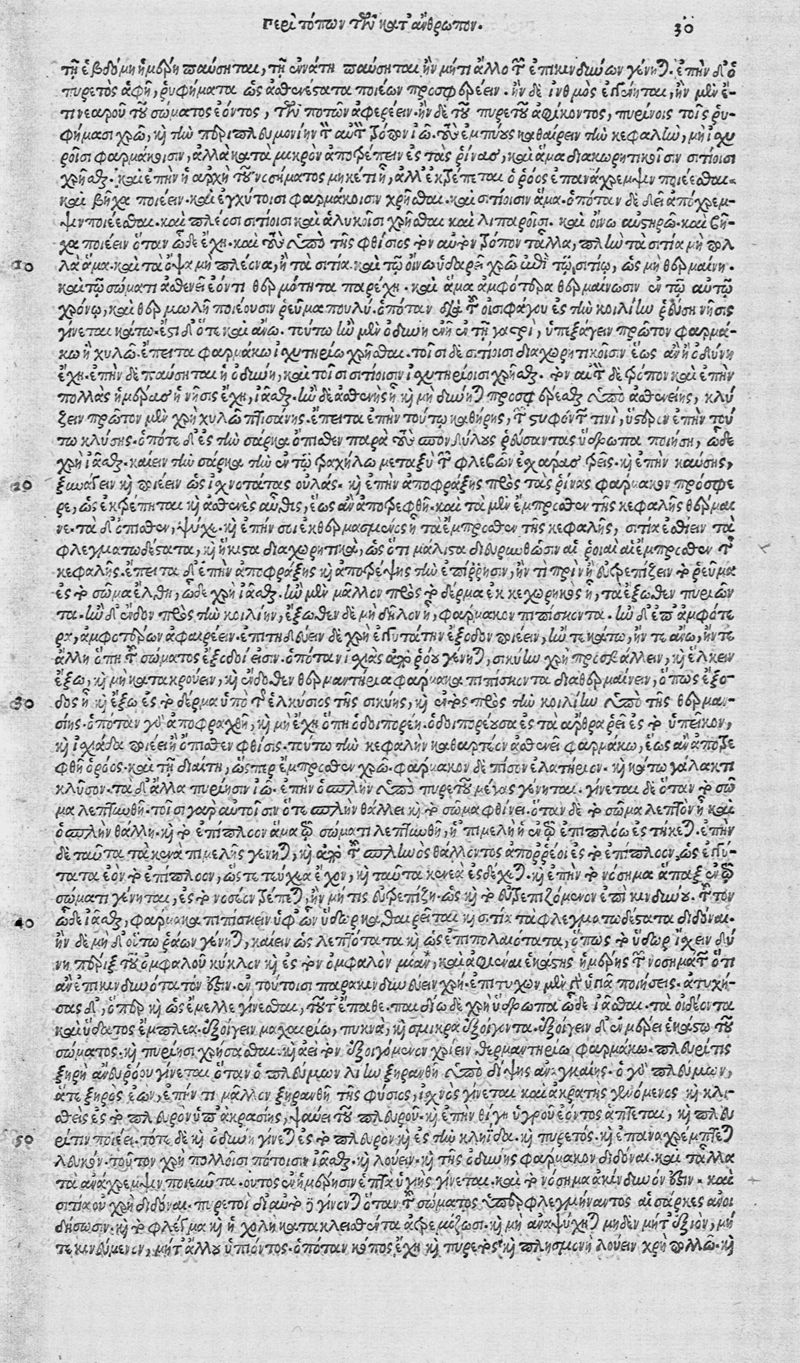 Περὶ τόπων τῶν κατ' ἄνθρωπον. 30
τῇ ἑβδόμῃ ἡμέρῃ παύσηται, τῇ ἐνάτῃ παύσηται ἢν μή τι ἄλλο τῶν ἐπικινδύνων γένηται. ἐπὴν δ' ὁ
πυρετὸς ἀφῇ, ῥυφήματα ὡς ἀσθενέστατα ποιέων προσφέρειν. ἢν δὲ ἰνηθμὸς ἐπιγίνηται, ἢν μὲν ἔ-
τι νεαροῦ τοῦ σώματος ἐόντος, τῶν ποτῶν ἀφερέειν. ἢν δὲ τοῦ πυρετοῦ ἀφίκοντος, πυρίνοις τοῖς ῥυ-
φήμασι χρῶ, καὶ τὴν περιπλευμονίην τὸν αὐτὸν τρόπον ἰῶ. τοὺς ἐμπύους καθαίρειν τὴν κεφαλὴν, μὴ ἰσχυ
ροῖσι φαρμάκοισιν, ἀλλὰ κατὰ μικρὸν ἀποτρέπειν ἐς τὰς ῥῖνας, καὶ ἅμα διαχωρητικοῖσιν σιτίοισι
χρῆσθαι. καὶ ἐπὴν ἡ ἀρχὴ τοῦ νοσήματος μηκέτι ᾖ, ἀλλ' ἐκτρέπεται ὁ ῥόος ἐπανάχρεμψιν ποιέεσθαι
καὶ βῆχα ποιέειν. καὶ ἐγχύτοισι φαρμάκοισιν χρῆσθαι. καὶ σιτίοισιν ἅμα. ὁπόταν δὲ δέῃ ἀπόχρεμ-
ψιν ποιέεσθαι. καὶ πλέοσι σιτίοισι καὶ ἁλυκοῖσι χρῆσθαι καὶ λιπαροῖσι. καὶ οἴνῳ αὐστηρῷ. καὶ βῆ-
χα ποιέειν ὅταν ὧδε ἔχῃ. καὶ τοὺς ὑπὸ τῆς φθίσιος τὸν αὐτὸν τρόπον τἄλλα, πλὴν τὰ σιτία μὴ πολ
10 λὰ ἅμα. καὶ τὰ ὄψα μὴ πλέονα, ἢ τὰ σιτία. καὶ τῷ οἴνῳ ὑδαρεῖ χρῶ ἐπὶ τῷ σιτίῳ, ὡς μὴ θερμαίνῃ.
καὶ τῷ σώματι ἀσθενεῖ ἐόντι θερμότητα παρέχῃ. καὶ ἅμα ἀμφότερα θερμαίνωσιν ἐν τῷ αὐτῷ
χρόνῳ, καὶ θερμωλὴν ποιέουσιν ῥεῦμα πουλύ. ὁπόταν διὰ τοῦ οἰσοφάγου ἐς τὴν κοιλίην ῥεύσῃ νῆσις
γίνεται κάτω. ἔστι δ' ὅτε καὶ ἄνω. τούτῳ ἢν μὲν ὀδύνη ἐνῇ ἐν τῇ γαστρὶ, ὑπεξάγειν πρῶτον φαρμά-
κῳ ἢ χυλῷ. ἔπειτα φαρμάκῳ ἰσχητηρίῳ χρῆσθαι. τοῖσι δὲ σιτίοισι διαχωρητικοῖσιν ἕως ἂν ἡ ὀδύνη
ἔχῃ. ἐπὴν δὲ παύσηται ἡ ὀδύνη, καὶ τοῖσι σιτίοισιν ἰσχητηρίοισι χρῆσθαι. τὸν αὐτὸν δὲ τρόπον καὶ ἐπὴν
πολλὰς ἡμέρας ἡ νῆσις ἔχῃ, ἰᾶσθαι. ἢν δὲ ἀσθενὴς ᾖ καὶ μὴ δύνηται προσφέρεσθαι ὑπὸ ἀσθενείης, κλύ
ζειν πρῶτον μὲν χρὴ χυλῷ πτισάνης. ἔπειτα ἐπὴν τούτῳ καθήρῃς, τῶν στυφόντων τινὶ, ὕστερον ἐπὴν τού
τῳ κλύσῃς. ὁπότε δ' ἐς τὴν σάρκα ὄπισθεν παρὰ τοὺς σπονδύλους ῥεύσαντας ὕδρωπα ποιήσῃ, ὧδε
χρὴ ἰᾶσθαι. καίειν τὴν σάρκα τὴν ἐν τῷ τραχήλῳ μεταξὺ τῶν φλεβῶν ἐσχάρας τρεῖς. καὶ ἐπὴν καύσῃς,
20 ξυνάγειν καὶ ποιέειν ὡς ἰσχνοτάτας οὐλάς. καὶ ἐπὴν ἀποφράξῃς πρὸς τὰς ῥῖνας φάρμακον πρόσφε
ρε, ὡς ἐκτρέπηται καὶ ἀσθενὲς αὖθις, ἕως ἂν ἀποτρεφθῇ. καὶ τὰ μὲν ἔμπροσθεν τῆς κεφαλῆς θέρμαι
νε. τὰ δ' ὄπισθεν, ψύχε. καὶ ἐπήν σοι ἐκθερμασμένος ᾖ τὰ ἔμπροσθεν τῆς κεφαλῆς, σιτία ἐσθίειν τὰ
φλεγματωδέστατα, καὶ ἥκιστα διαχωρητικὰ, ὡς ὅτι μάλιστα διευρυνθῶσιν αἱ ῥοιαὶ αἱ ἔμπροσθεν τῆς
κεφαλῆς. ἔπειτα δ' ἐπὴν ἀποφράξῃς καὶ ἀποτρέψῃς τὴν ἐπίρρησιν, ἤν τι πρὶν ἢ εὐτρεπίζειν τὸ ῥεῦμα
ἐς τὸ σῶμα ἔλθῃ, ὧδε χρὴ ἰᾶσθαι. ἢν μὲν μᾶλλον πρὸς τὸ δέρμα ἐκκεχωρηκὸς ᾖ, τὰ ἔξωθεν πυριῶν
τα. ἢν δ' ἔνδον πρὸς τὴν κοιλίην, ἔξωθεν δὲ μὴ δῆλον ᾖ, φάρμακον πιπίσκοντα. ἢν δ' ἐπ' ἀμφότε
ρα, ἀμφοτέρων ἀφαιρέειν. ἐπιτηδεύειν δὲ χρὴ ἐγγυτάτην ἔξοδον ποιέειν, ἤν τε κάτω, ἤν τε ἄνω, ἤν τε
ἄλλῃ ὅπῃ τοῦ σώματος ἔξοδοί εἰσιν. ὁπόταν ἰσχιὰς ἀπὸ ῥόου γένηται, σικύην χρὴ προσβάλλειν, καὶ ἕλκειν
ἔξω, καὶ μὴ κατακρούειν, καὶ ἔνδοθεν θερμαντήρια φάρμακα πιπίσκοντα διαθερμαίνειν, ὅπως ἔξο-
30 δος ᾖ καὶ ἔξω ἐς τὸ δέρμα ὑπὸ τῆς ἑλκύσιος τῆς σικύης, καὶ ἐντὸς πρὸς τὴν κοιλίην ὑπὸ τῆς θερμαν-
σίης. ὁπόταν γὰρ ἀποφραχθῇ, καὶ μὴ ἔχῃ ὅπῃ ὁδοιπορέῃ. ὁδοιπορέουσα ἐς τὰ ἄρθρα ῥεῖ ἐς τὸ ὑπεῖκον,
καὶ ἰσχιάδα ποιέει ἡ ὄπισθεν φθίσις. τούτῳ τὴν κεφαλὴν καθαρτέον ἀσθενεῖ φαρμάκῳ, ἕως ἂν ἀποτρε
φθῇ ὁ ῥόος. καὶ τῇ διαίτῃ, ὥσπερ ἔμπροσθεν χρῶ. φάρμακον δὲ πῖσον ἐλατήριον. καὶ κάτω γάλακτι
κλῦσον. τὰ δ' ἄλλα πυρίησιν ἰῶ. ἐπὴν ὁ σπλὴν ὑπὸ πυρετοῦ μέγας γένηται. γίνεται δὲ ὅταν τὸ σῶ
μα λεπτυνθῇ. τοῖσι γὰρ αὐτοῖσιν ὅ τε σπλὴν θάλλει καὶ τὸ σῶμα φθίνει. ὅταν δὲ τὸ σῶμα λεπτὸν ᾖ καὶ
ὁ σπλὴν θάλλῃ. καὶ τὸ ἐπίπλοον ἅμα τῷ σώματι λεπτυνθῇ, ἡ πιμελὴ ἡ ἐν τῷ ἐπιπλόῳ ἐστὶ τήκεται. ἐπὴν
δὲ ταῦτα τὰ κενὰ πιμελῆς γένηται, καὶ ἀπὸ τοῦ σπληνὸς θάλλοντος ἀπορρέοι ἐς τὸ ἐπίπλοον, ὡς ἐγγύ-
τατα ἐὸν τὸ ἐπίπλοον, ὥς τε τεύχεα ἔχον, καὶ ταῦτα κενεὰ ἐσδέχεται. καὶ ἐπὴν τὸ νόσημα ἅπαξ ἐν τῷ
σώματι γένηται, ἐς τὸ νοσέον τρέπεται, ἢν μή τις εὐτρεπίζῃ. ὡς καὶ τὸ εὐτρεπιζόμενον ἐπικίνδυνον. τοῦτον
40 ὧδε ἰᾶσθαι, φάρμακα πιπίσκειν ὑφ' ὧν ὕδωρ καθαίρεται καὶ σιτία τὰ φλεγματωδέστατα διδόναι.
ἢν δὲ μὴ δ' οὕτω ῥάων γένηται, καίειν ὡς λεπτότατα καὶ ὡς ἐπιπολαιότατα, ὅπως τὸ ὕδωρ ἴσχειν δύ
νῃ πέριξ τοῦ ὀμφαλοῦ κύκλον καὶ ἐς τὸν ὀμφαλὸν μίαν, καὶ ἀφιέναι ἑκάστης ἡμέρης τῶν νοσημάτων ὅτι
ἂν ἐπικινδυνότατον ᾖ. ἐν τούτοισι παρακινδυνεύειν χρή. ἐπιτυχὼν μὲν γὰρ ὑγιᾶ ποιήσεις. ἀτυχή-
σας δ', ὅπερ καὶ ὡς ἔμελλε γίνεσθαι, τοῦτ' ἔπαθε. παιδίῳ δὲ χρὴ ὕδρωπα ὧδε ἰᾶσθαι. τὰ οἰδέοντα
καὶ ὕδατος ἔμπλεα. ἐξοίγειν μαχαιρίῳ, πυκνὰ, καὶ σμικρὰ ἐξοίγοντα. ἐξοίγειν δ' ἐν μέρει ἑκάστῳ τοῦ
σώματος. καὶ πυρίῃσι χρῆσασθαι. καὶ αἰεὶ τὸ ἐξοιγόμενον χρίειν θερμαντηρίῳ φαρμάκῳ. πλευρῖτις
ξηρὴ ἄνευ ῥόου γίνεται ὅταν ὁ πλεύμων λίην ξηρανθῇ ὑπὸ δίψης ἀναγκαίης. ὁ γὰρ πλεύμων,
ἅτε ξηρὸς ἐὼν, ἐπήν τι μᾶλλον ξηρανθῇ τῆς φύσιος, ἰσχνὸς γίνεται καὶ ἀκρατὴς γενόμενος καὶ κλι-
θεὶς ἐς τὸ πλευρὸν ὑπ' ἀκρασίης, ψαύει τοῦ πλευροῦ. καὶ ἐπὴν θίγῃ ὑγροῦ ἐόντος ἅπτεται, καὶ πλευ
50 ρῖτιν ποιέει. τότε δὲ καὶ ὀδύνη γίνεται ἐς τὸ πλευρὸν καὶ ἐς τὴν κληῗδα. καὶ πυρετός. καὶ ἐπαναχρέμπτεται
λευκόν. τοῦτον χρὴ πολλοῖσι πότοισιν ἰᾶσθαι. καὶ λούειν. καὶ τῆς ὀδύνης φάρμακον διδόναι. καὶ τἆλλα
τὰ ἀνάχρεμψιν ποιεῦντα. οὗτος ἐν ἡμέρῃσιν ἑπτὰ ὑγιὴς γίνεται. καὶ τὸ νόσημα ἀκίνδυνόν ἐστιν. καὶ
σιτία οὐ χρὴ διδόναι. πυρετοὶ διὰ τόδε γίνονται ὅταν τοῦ σώματος ὑπερφλεγμήναντος αἱ σάρκες ἀνοι
δήσωσιν. καὶ τὸ φλέγμα καὶ ἡ χολὴ κατακλεισθέντα ἀτρεμίζωσι. καὶ μὴ ἀναψύχηται μηδὲν μήτ' ἐξιὸν, μή
τε κινεύμενον, μήτ' ἄλλου ὑπιόντος. ὁπόταν κόπος ἔχῃ καὶ πυρετὸς καὶ πλησμονὴ λούειν χρὴ πολλῷ. καὶ